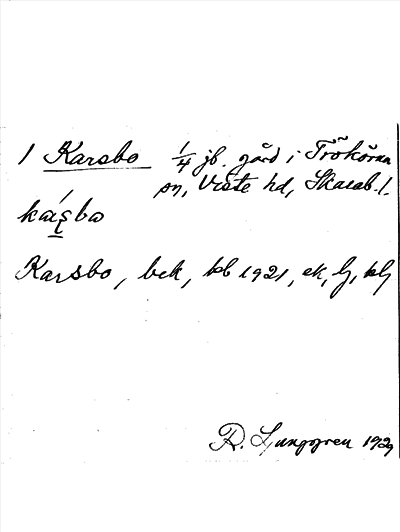 1 Karsbo 1/4 jb. gård i Trökörna
sn, Viste hd, Skarab. l.
Karsbo, bek, kb 1921, ek, lj, klj
R. Ljunggren 1929